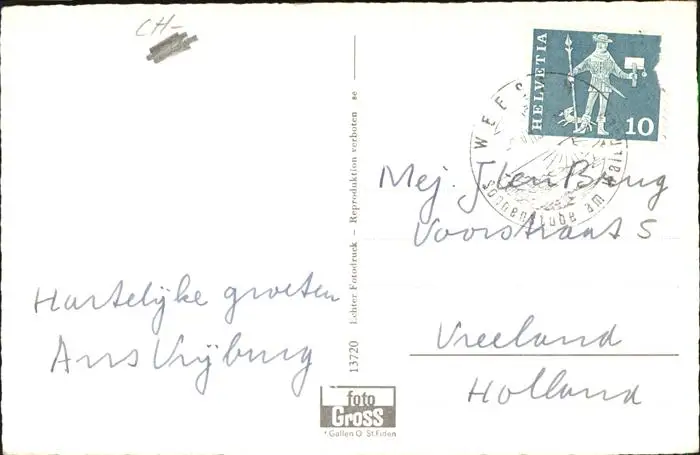 CH-
HELVETIA
10
WEES
Sonnenstube am Walen
Mej. J ten Brug
Voorstraat 5
Vreeland
Holland
Hartelijke groeten
Ans Vrijburg
13720 Echter Fotodruck - Reproduktion verboten se
foto
GROSS
St.Gallen O St.Fiden